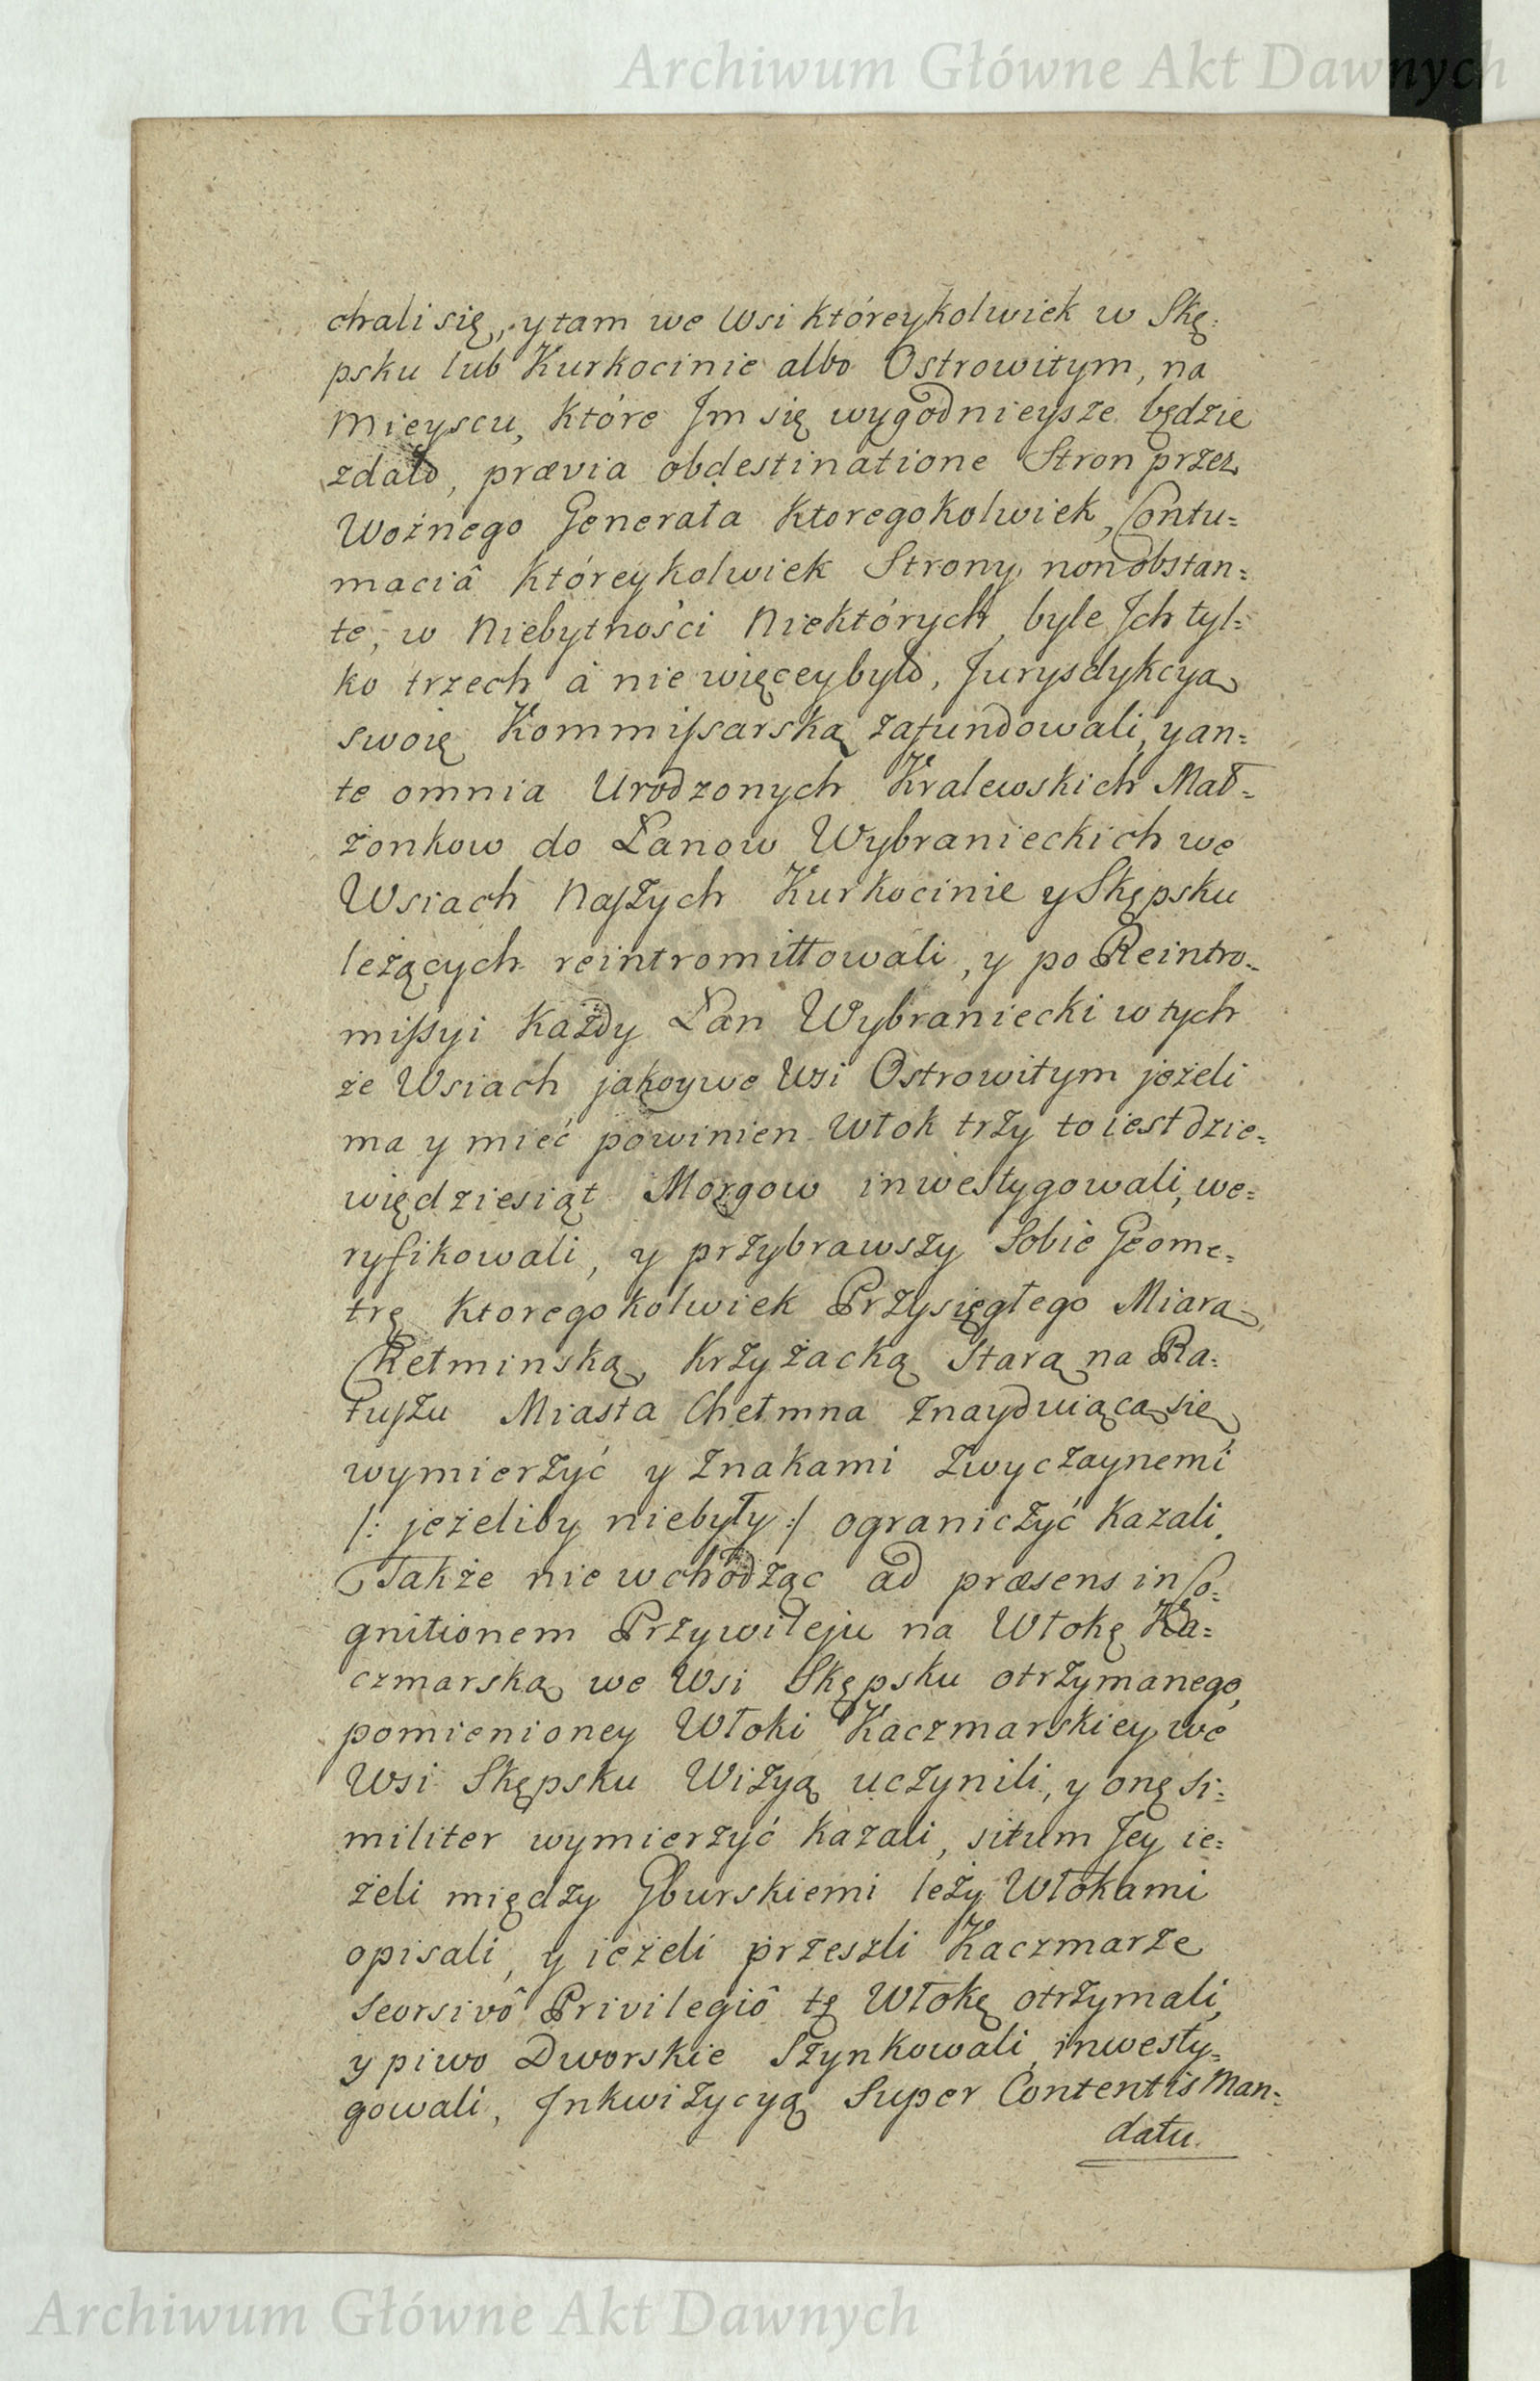 Archiwum Główne Akt Dawnych
chali się, y tam we Wsi któreykolwiek w Skę=
psku lub Kurkocinie albo Ostrowitym, na
Mieyscu, które Jm się wygodnieysze będzie
zdało, prævia obdestinatione Stron przez
Woźnego Generała ktoregokolwiek, Contu=
maciâ któreykolwiek Strony non obstan=
te, w Niebytności Niektórych, byle Jch tyl=
ko trzech à nie więcey było, Jurysdykcyą
swoię Kommißarską zafundowali, y an=
te omnia Urodzonych Kralewskich Mał=
żonkow do Łanow Wybranieckich we
Wsiach Naszych Kurkocinie y Skępsku
leżących reintromittowali, y po Reintro=
mißyi każdy Łan Wybraniecki w tych
że Wsiach jako y we Wsi Ostrowitym jeżeli
ma y mieć powinien Włok trzy to iest dzie=
więdziesiąt Morgow inwestygowali, we=
ryfikowali, y przybrawszy Sobie Geome=
trę ktoregokolwiek Przysięgłego Miarą
Chełminską, Krzyżacką Starą na Ra=
tuszu Miasta Chełmna znayduiącą się
wymierzyć y znakami zwyczaynemi
/: jeżeliby niebyły :/ ograniczyć kazali.
Także nie wchodząc ad præsens in Co=
gnitionem Przywileju na Włokę Ka=
czmarską we Wsi Skępsku otrzymanego,
pomienioney Włoki Kaczmarskiey we
Wsi Skępsku Wizyą uczynili, y onę si=
militer wymierzyć kazali, situm Jey ie=
żeli między Gburskiemi leży Włokami
opisali, y ieżeli przeszli Kaczmarze
seorsivô Privilegiô tę Włokę otrzymali,
y piwo Dworskie Szynkowali, inwesty=
gowali, Jnkwizycyą Super Contentis Man=
datu.
Archiwum Główne Akt Dawnych